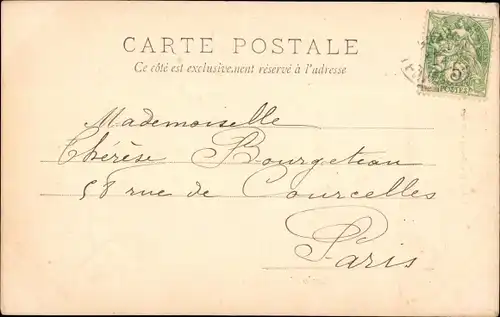 CARTE POSTALE
Ce côté est exclusivement réservé à l'adresse
5
POSTES
Mademoiselle
Thérèse Bourgeteau
58 rue de Courcelles
Paris